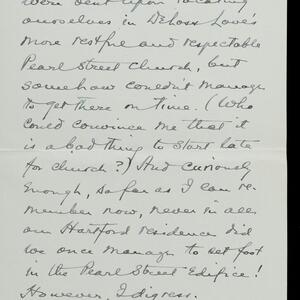 were bent upon locating
ourselves in DeLoss Love's
more restful and respectable
Pearl Street Church, but
somehow couldn't manage
to get there on time. (Who
could convince me that it
is a bad thing to start late
for church?) And curiously
enough, so far as I can re-
member now, never in all
our Hartford residence did
we once manage to set foot
in the Pearl Street Edifice!
However, I digress.